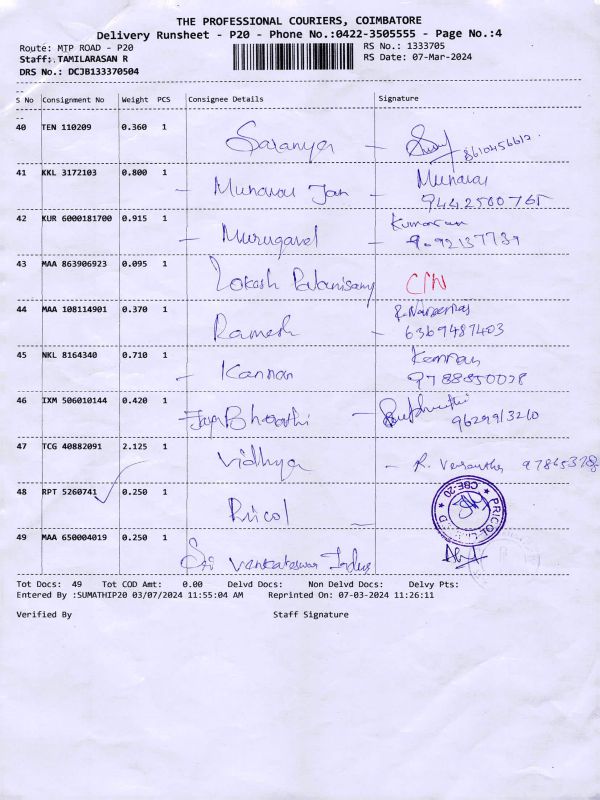 THE PROFESSIONAL COURIERS, COIMBATORE
Delivery Runsheet - P20 - Phone No.:0422-3505555 - Page No.:4
Route: MTP ROAD - P20 RS No.: 1333705
Staff: TAMILARASAN R RS Date: 07-Mar-2024
DRS No.: DCJB133370504
S No Consignment No Weight PCS Consignee Details Signature
40 TEN 110209 0.360 1 Saranya - 8610456612
41 KKL 3172103 0.800 1 - Munavar Jan - Munavar
9442500765
42 KUR 6000181700 0.915 1 - Murugavel - Kumaran
9092137739
43 MAA 863906923 0.095 1 Lokash Palanisamy C/N
44 MAA 108114901 0.370 1 Ramesh -
6369487403
45 NKL 8164340 0.710 1 - Kannan Kannan
9788550028
46 IXM 506010144 0.420 1 Jaya Bharathi -
9629913210
47 TCG 40882091 2.125 1 Vidhya - R.
48 RPT 5260741 0.250 1 Pricol - PRICOL CBE-20
49 MAA 650004019 0.250 1 Sri Venkateswar Indus
Tot Docs: 49 Tot COD Amt: 0.00 Delvd Docs: Non Delvd Docs: Delvy Pts:
Entered By :SUMATHIP20 03/07/2024 11:55:04 AM Reprinted On: 07-03-2024 11:26:11
Verified By Staff Signature